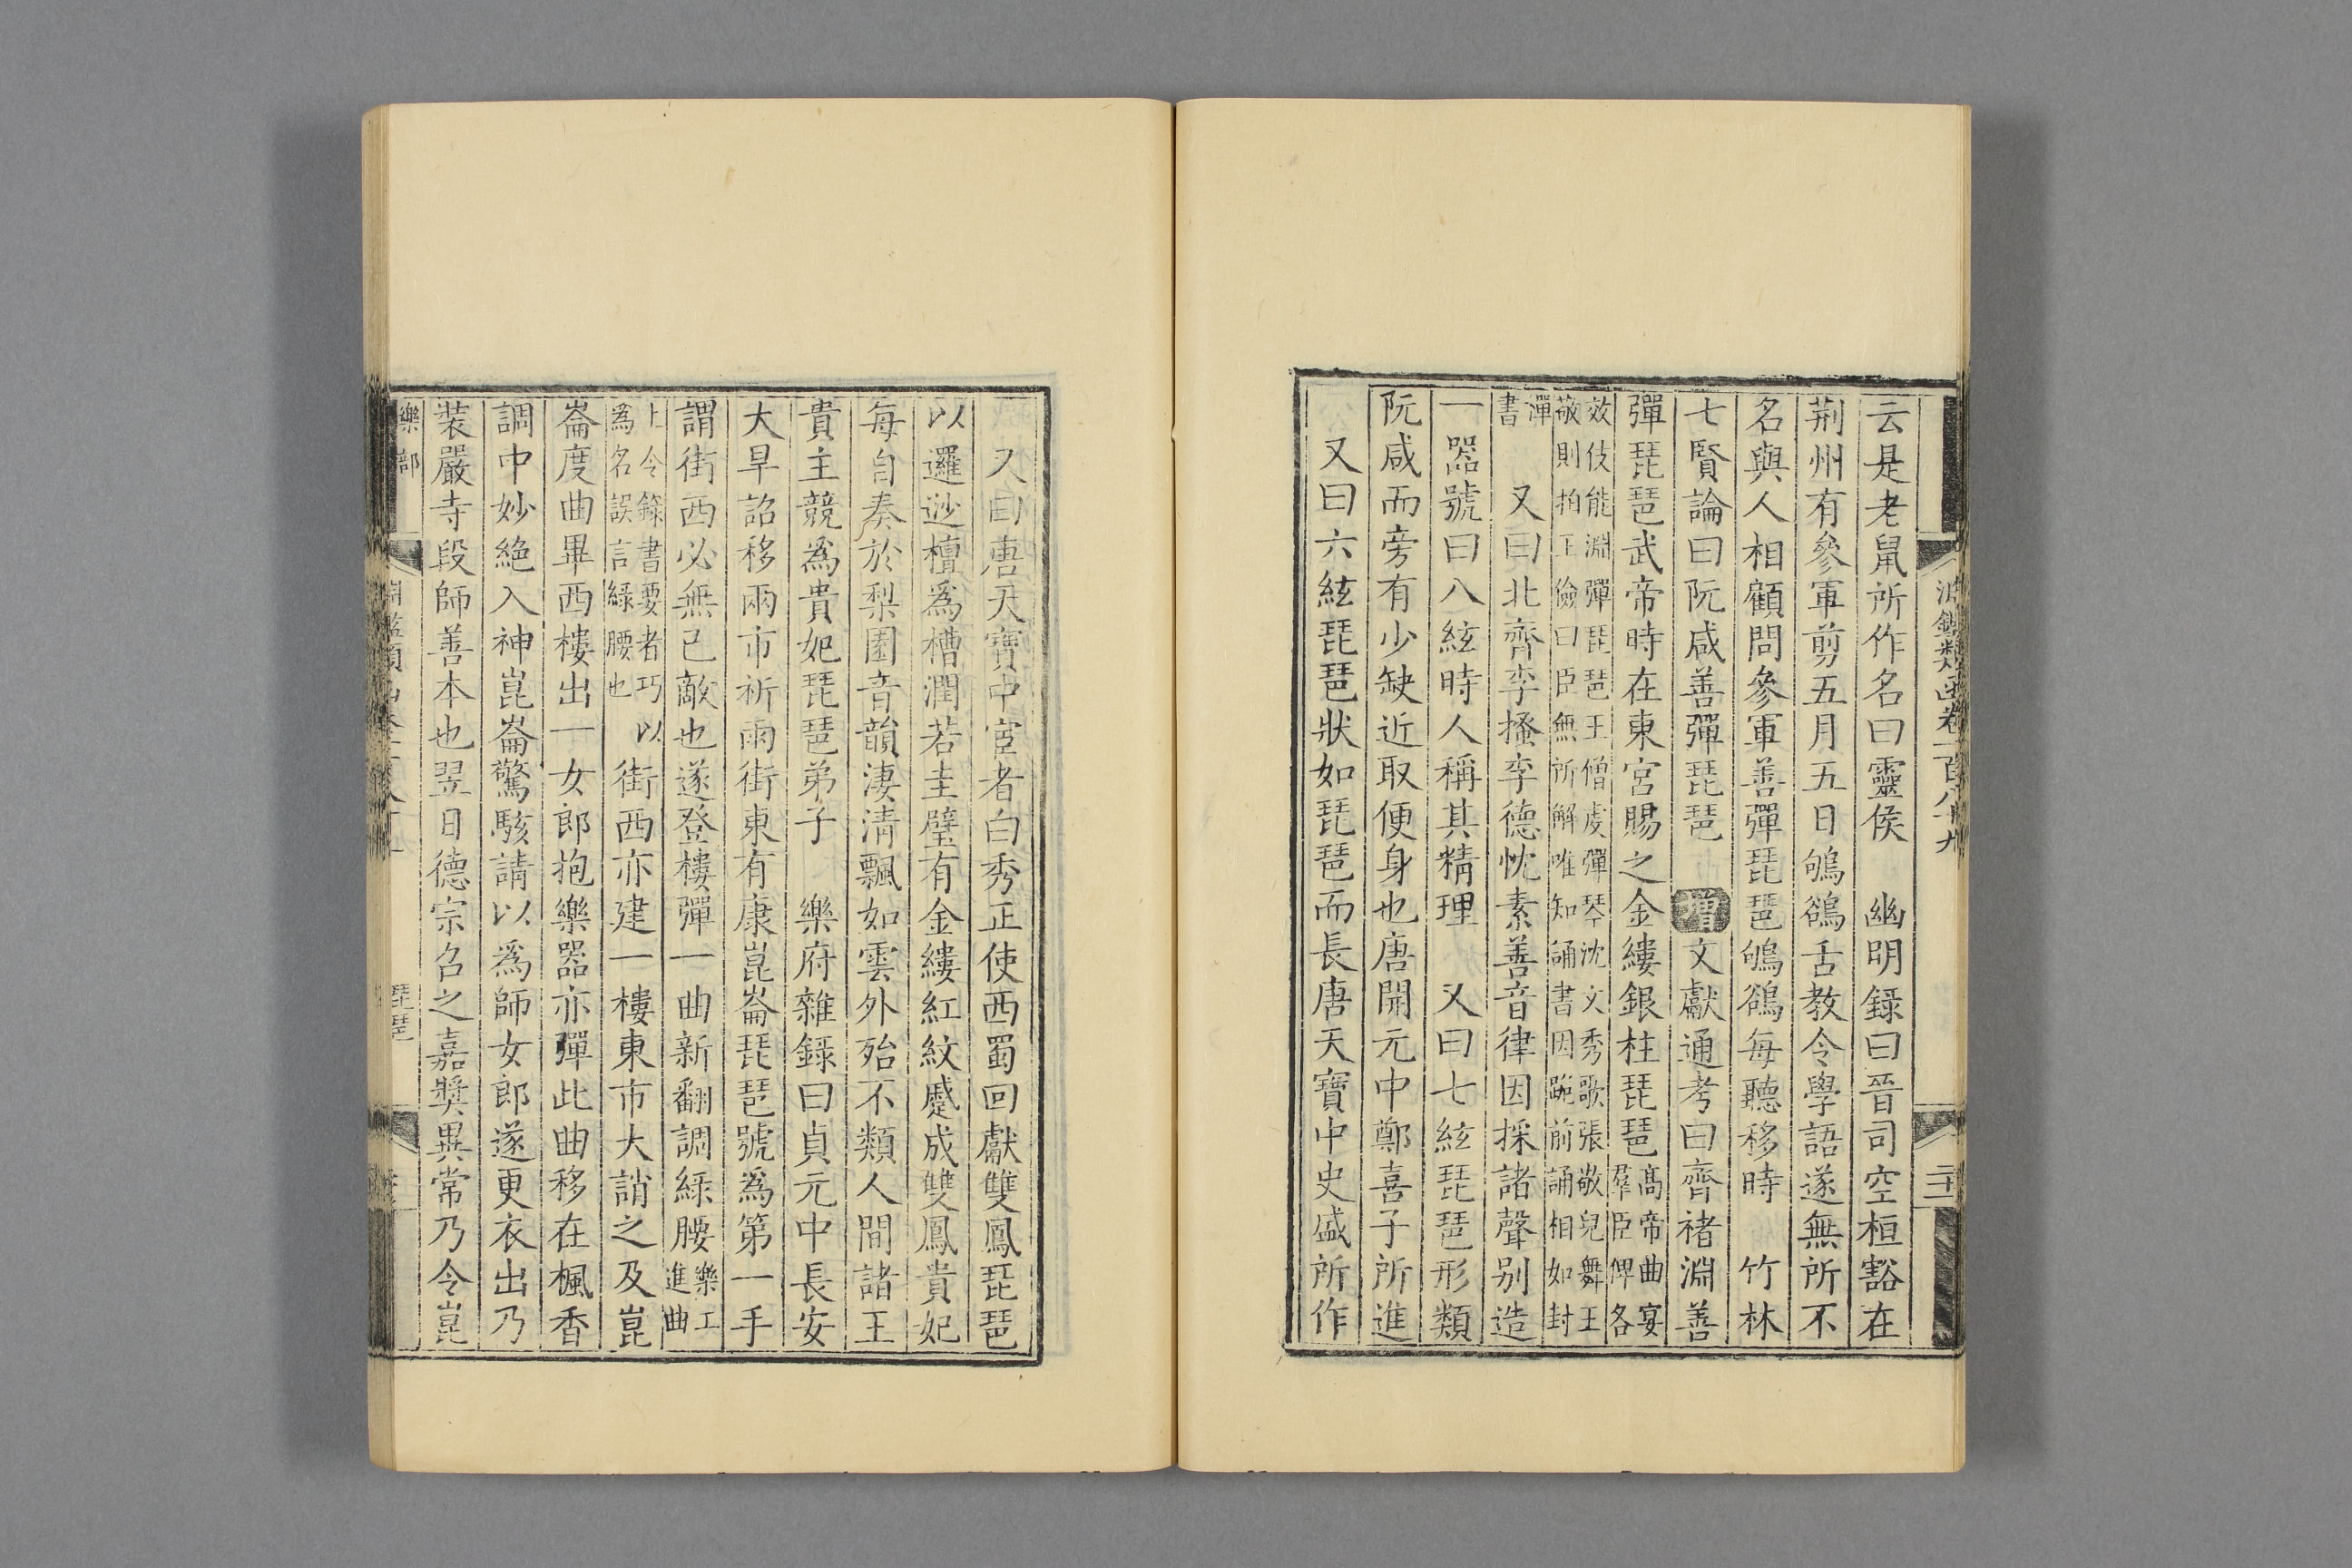 淵鑑類函卷一百八十九
二十一
云是老鼠所作名曰靈侯　幽明録曰晉司空桓豁在
荆州有參軍剪五月五日鴝鵒舌教令學語遂無所不
名與人相顧問參軍善彈琵琶鴝鵒每聽移時　竹林
七賢論曰阮咸善彈琵琶　增文獻通考曰齊褚淵善
彈琵琶武帝時在東宮賜之金縷銀柱琵琶高帝曲宴
羣臣俾各
效伎能淵彈琵琶王僧虔彈琴沈文秀歌張敬兒舞王
敬則拍王儉曰臣無所解唯知誦書因跪前誦相如封
禪
書　又曰北齊李搔李德忱素善音律因採諸聲别造
一器號曰八絃時人稱其精理　又曰七絃琵琶形類
阮咸而旁有少缺近取便身也唐開元中鄭喜子所進
又曰六絃琵琶狀如琵琶而長唐天寶中史盛所作
又曰唐天寶中宦者白秀正使西蜀回獻雙鳳琵琶
以邏逤檀爲槽潤若圭璧有金縷紅紋蹙成雙鳳貴妃
每自奏於梨園音韻淒清飄如雲外殆不類人間諸王
貴主競爲貴妃琵琶弟子　樂府雜録曰貞元中長安
大旱詔移兩市祈雨街東有康崑崙琵琶號爲第一手
謂街西必無已敵也遂登樓彈一曲新翻調緑腰樂工
進曲
上令錄書要者巧以
為名誤言綠腰也
街西亦建一樓東市大誚之及崑
崙度曲畢西樓出一女郎抱樂器亦彈此曲移在楓香
調中妙絶入神崑崙驚駭請以爲師女郎遂更衣出乃
裝嚴寺段師善本也翌日德宗名之嘉奬異常乃令崑
樂部
琵琶